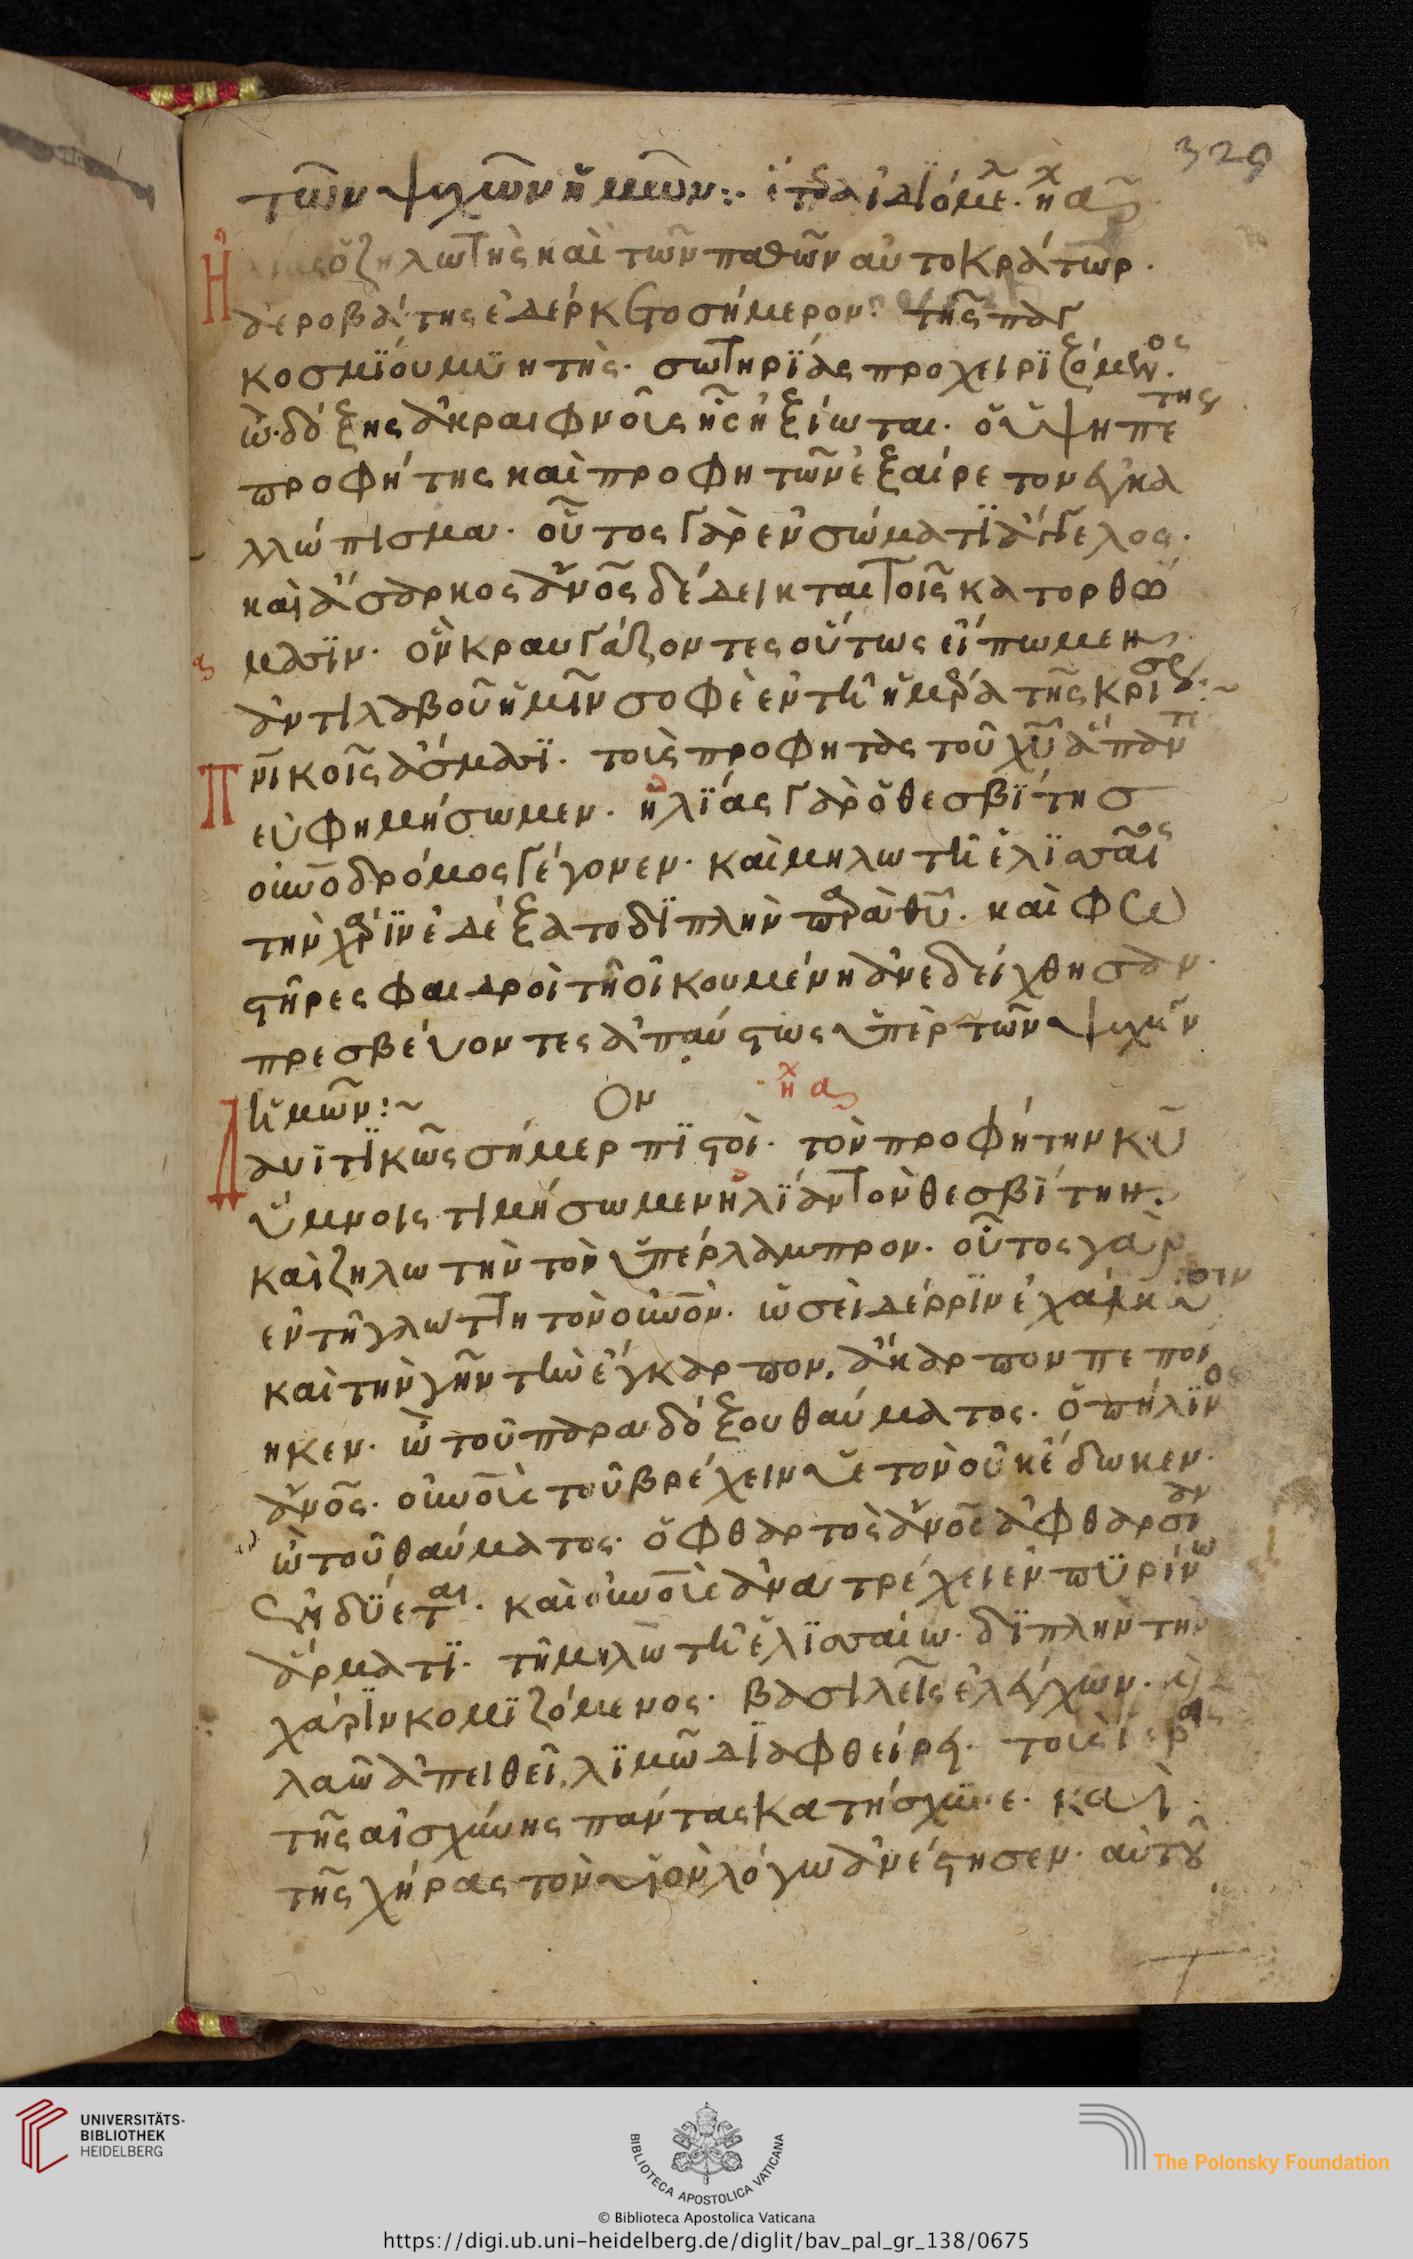 329
τῶν ψυχῶν ἡμῶν:· ἕτερα ἰδιόμελ. ἦχ α
Ἠλίας ὁ ζηλωτὴς καὶ τῶν παθῶν αὐτοκράτωρ.
ἀεροβάτης ἐδέρκετο σήμερον· τῆς παγ
κοσμΐου μϋητὴς. σωτηρΐας προχειρϊζόμενος.
ὢ δόξης ἀκραιφνοῦς ἧς ἠξίωται. ὁ ὑψηπέτης
προφήτης καὶ προφητῶν ἐξαίρετον ἐγκα
λλώπισμα. οὗτος γὰρ ἐν σώματϊ ἄγγελος.
καὶ ἄσαρκος ἄνος δέδεικται τοῖς κατορθώ
μασϊν. ὃν κραυγάζοντες οὕτως εἴπωμεν
ἀντιλαβοῦ ἡμῖν σοφὲ ἐν τῆ ἡμέρα τῆς κρίσεως:~
Πνϊκοῖς ἄσμασϊ. τοὺς προφήτας τοῦ χῦ ἅπαντες
εὐφημήσωμεν. ἠλΐας γὰρ ὁ θεσβΐτης
οὐνοδρόμος γέγονεν. καὶ μηλωτῆ ἐλϊσσαῖος
τὴν χάρϊν ἐδέξατο δϊπλὴν παρὰ θῦ. καὶ φω
στῆρες φαιδροὶ τῆ οἰκουμένη ἀνεδείχθησαν.
πρεσβεύοντες ἀπαύστως ὑπὲρ τῶν ψυχῶν
ἡμῶν:~ Ον ἦχ α
Δαυϊτϊκῶς σήμερ πϊστοὶ. τὸν προφήτην κυ
ὕμνοις τιμήσωμεν ἠλΐαν τὸν θεσβΐτην.
καὶ ζηλωτὴν τὸν ὑπέρλαμπρον. οὗτος γὰρ
ἐν τῆ γλώττη τὸν οὐνὸν. ὡσεὶ δέρρϊν ἐχαλκ
καὶ τὴν γῆν τὴν ἔγκαρπον. ἄκαρπον πεποί
ηκεν. ὢ τοῦ παραδόξου θαύματος. ὁ πήλϊνος
ἄνος. οὐνοὺς τοῦ βρέχειν ὑετὸν οὐκ ἔδωκεν.
ὢ τοῦ θαύματος. ὁ φθαρτὸς ἄνος ἀφθαρσίαν
ἐνδϋέται. καὶ οὐνοὺς ἀνατρέχει ἐν πϋρίνω
ἅρματϊ. τῆ μηλωτῆ ἐλϊσσαίω. δϊπλὴν τὴν
χάρϊν κομϊζόμενος. βασιλεῖς ἐλέγχων.
λαῶ ἀπειθεῖ, λϊμῶ δϊαφθείρει. τοὺς ἱερεῖς
τῆς αἰσχύνης πάντας κατήσχϋνε. καὶ
τῆς χήρας τὸν υἱὸν λόγω ἀνέστησεν. αὐτοῦ
UNIVERSITÄTS-
BIBLIOTHEK
HEIDELBERG
BIBLIOTECA APOSTOLICA VATICANA
The Polonsky Foundation
© Biblioteca Apostolica Vaticana
https://digi.ub.uni-heidelberg.de/diglit/bav_pal_gr_138/0675